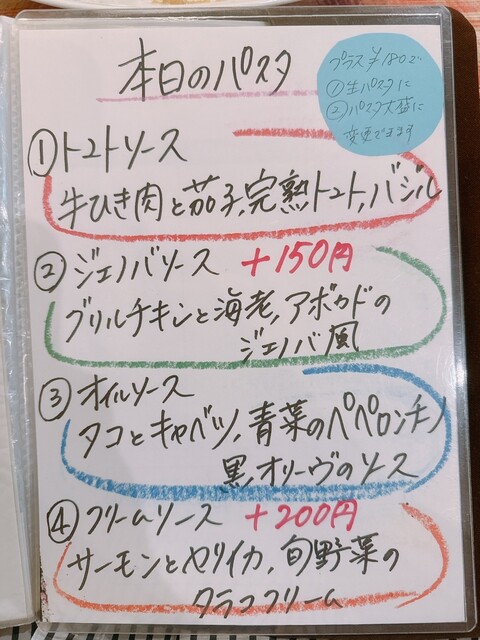 本日のパスタ
プラス¥180で
①生パスタに
②パスタ大盛に
変更できます
①トマトソース
牛ひき肉と茄子,完熟トマト,バジル
②ジェノバソース +150円
グリルチキンと海老,アボカドの
ジェノバ風
③オイルソース
タコとキャベツ,青菜のペペロンチーノ
黒オリーヴのソース
④クリームソース +200円
サーモンとヤリイカ,旬野菜の
タラコクリーム